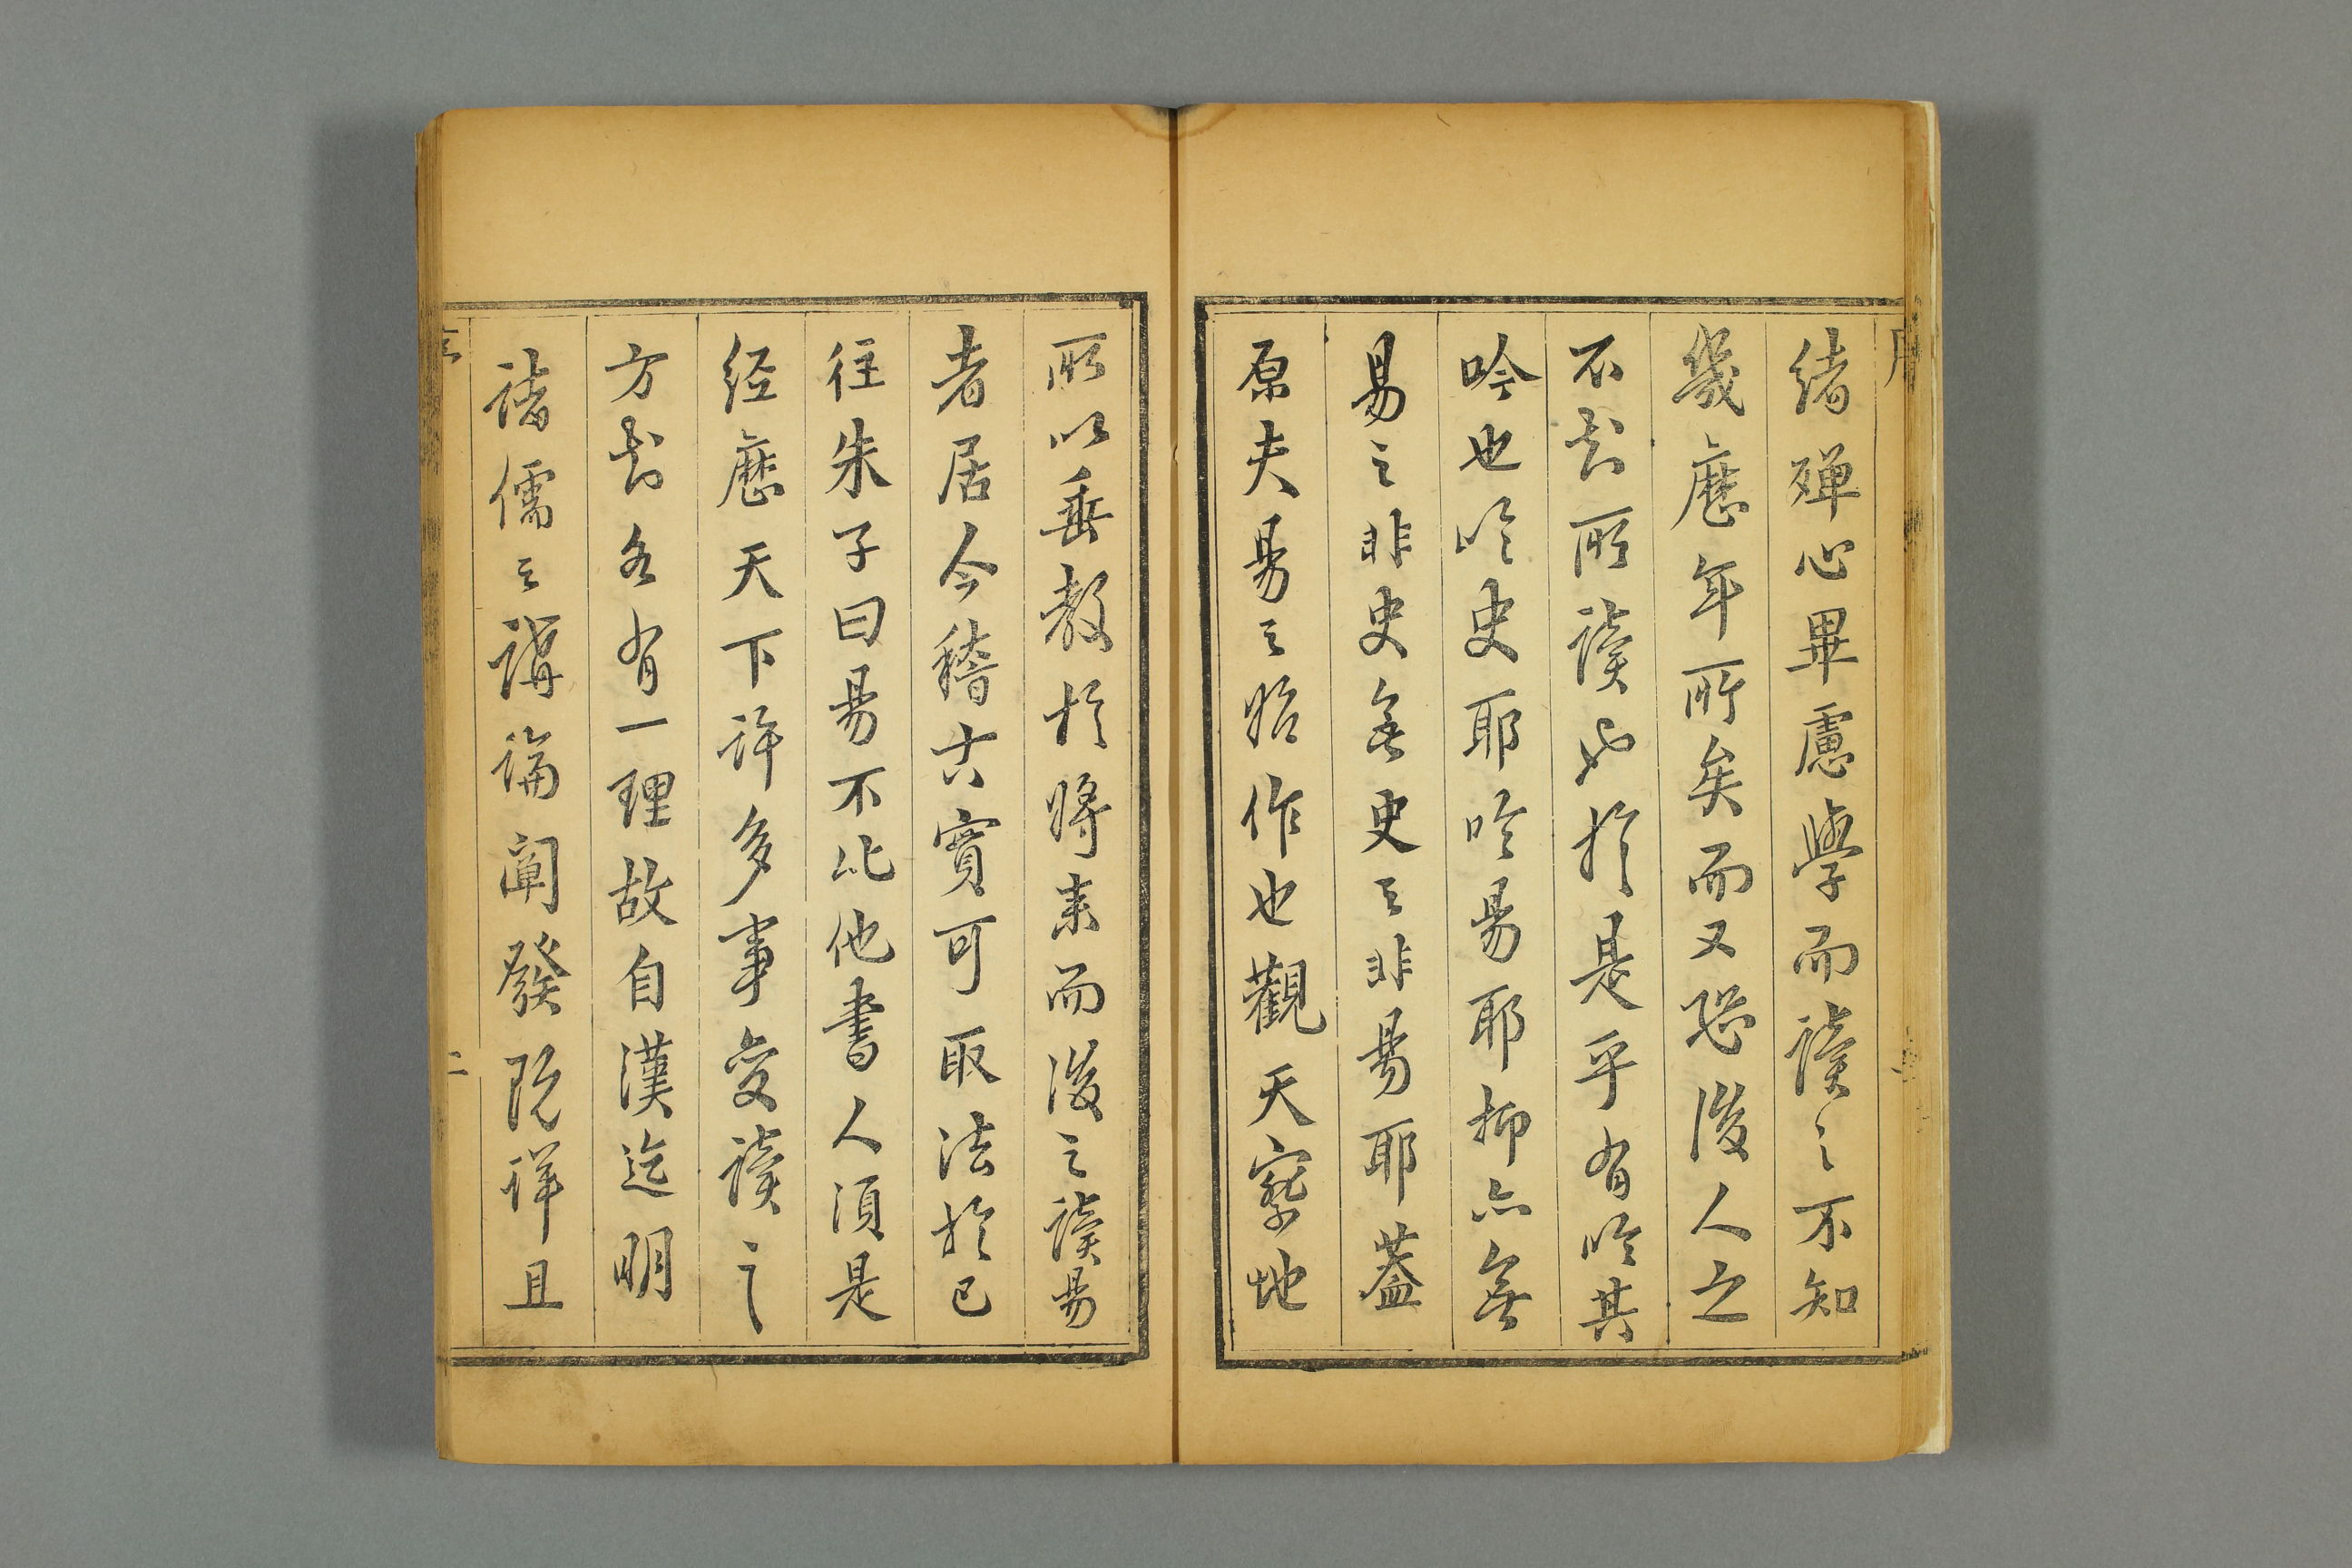 緒殫心畢慮學而讀之不知
幾歷年所矣而又恐後人之
不知所讀也於是乎有吟其
吟也吟史耶吟易耶抑亦無
易之非史無史之非易耶蓋
原夫易之始作也觀天察地
所以垂教於將来而後之讀易
者居今稽古實可取法於已
往朱子曰易不比他書人須是
経歷天下許多事變讀之
方知各有一理故自漢迄明
諸儒之講論闡發既詳且
二